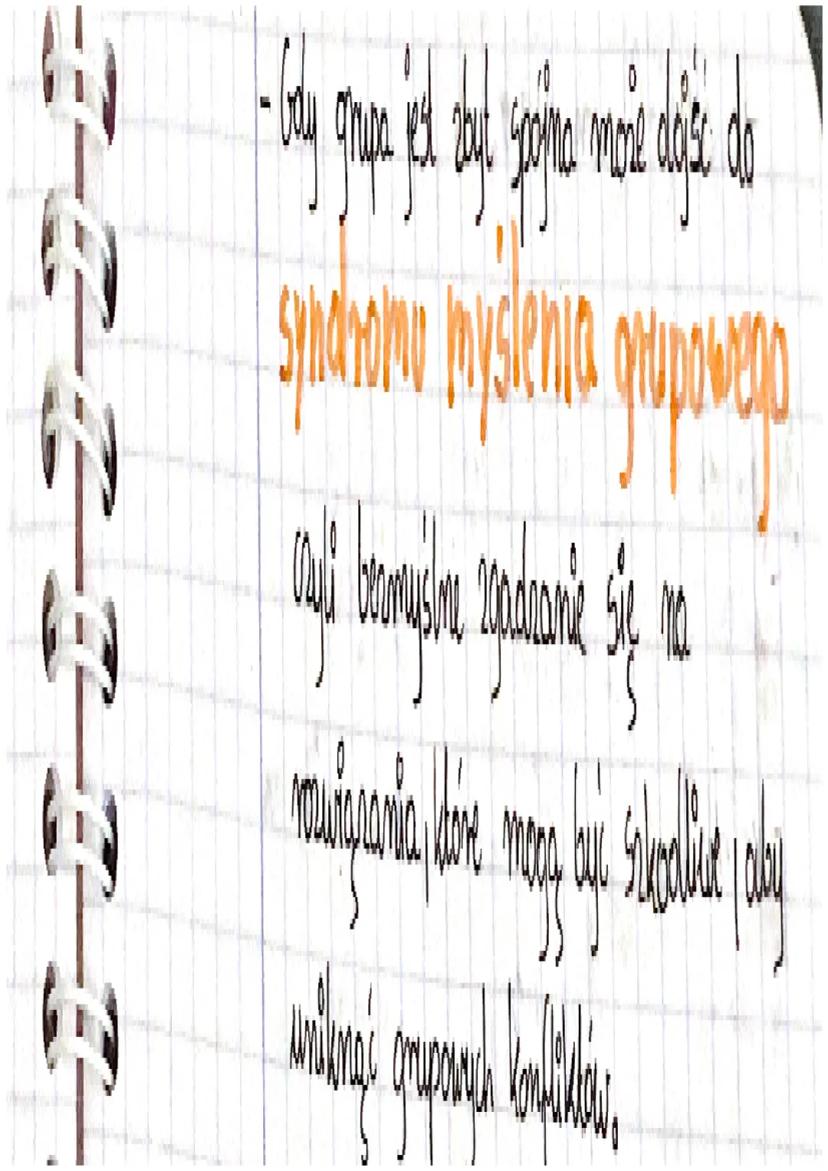 - Gdy grupa jest zbyt spójna może dojść do
syndromu myślenia grupowego
czyli bezmyślne zgadzanie się na
rozwiązania, które mogą być szkodliwe, aby
uniknąć grupowych konfliktów.